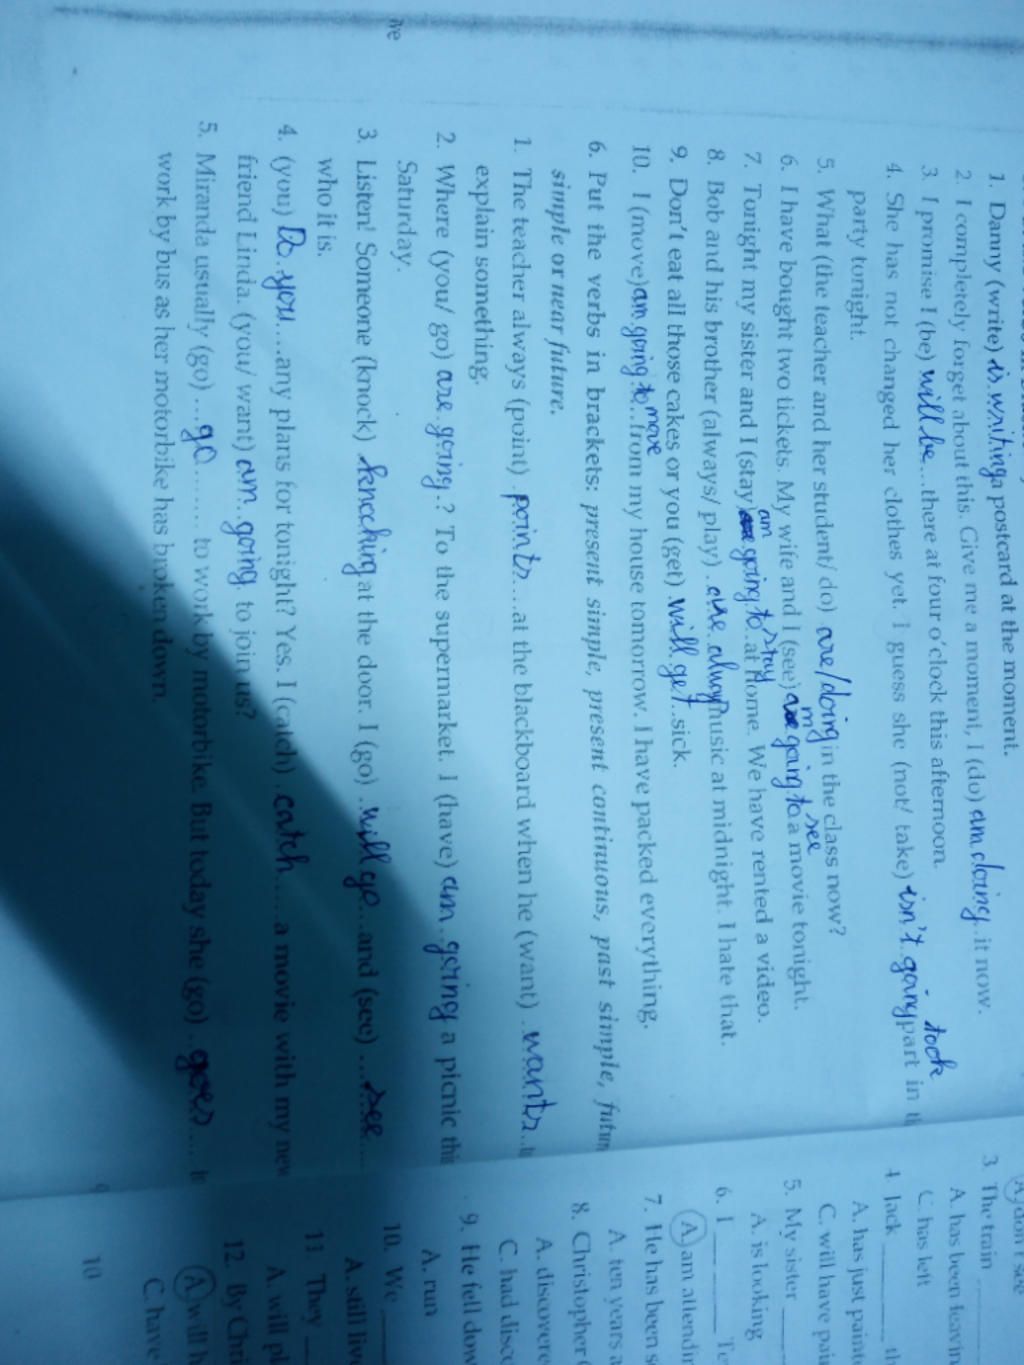 1. Danny (write) is writing a postcard at the moment.
2. I completely forget about this. Give me a moment, I (do) am doing..it now.
3. I promise I (be) will be...there at four o'clock this afternoon.
4. She has not changed her clothes yet. I guess she (not/ take) isn't going took part in
party tonight.
5. What (the teacher and her student/ do) are/doing in the class now?
6. I have bought two tickets. My wife and I (see) am going to see a movie tonight.
7. Tonight my sister and I (stay) am going to stay..at home. We have rented a video.
8. Bob and his brother (always/ play) .are music at midnight. I hate that.
9. Don't eat all those cakes or you (get) .will get..sick.
10. I (move) am going to move..from my house tomorrow. I have packed everything.
6. Put the verbs in brackets; present simple, present continuous, past simple,
simple or near future.
1. The teacher always (point) .points....at the blackboard when he (want) ..wants..
explain something.
2. Where (you/ go) are going.? To the supermarket. I (have) am..going a picnic
Saturday.
3. Listen! Someone (knock) knocking at the door. I (go) ..will go...and (see) ...see....
who it is.
4. (you) Do you....any plans for tonight? Yes. I (catch) .catch......a movie with my
friend Linda. (you/ want) am going. to join us?
5. Miranda usually (go) ...go....... to work by motorbike. But today she (go) ..goes....
work by bus as her motorbike has broken down.
9
3. The train
A. has been
C. has left
4. Jack
A. has just
C. will have
5. My sister
A. is looking
6. I
A. am
7. He has been
A. ten years
8. Christopher
A.
C. had
9. He fell
A. run
10. We
A. still
11. They
A. will
12. By
A. will
C. have
10